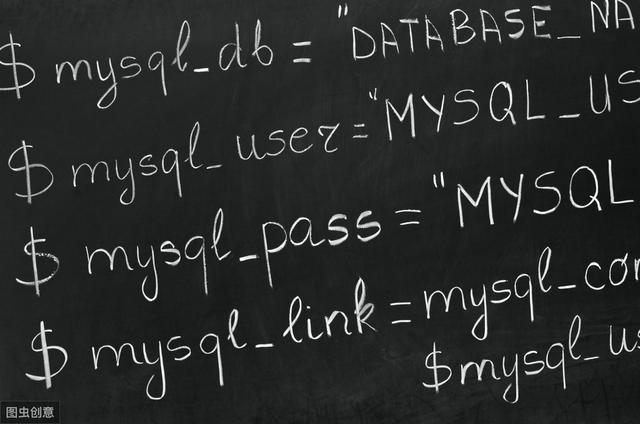 $ mysql_db = "DATABASE_NA
$ mysql_user="MYSQL_US
$ mysql_pass = "MYSQL
$ mysql_link = mysql_con
$mysql_us
图虫创意